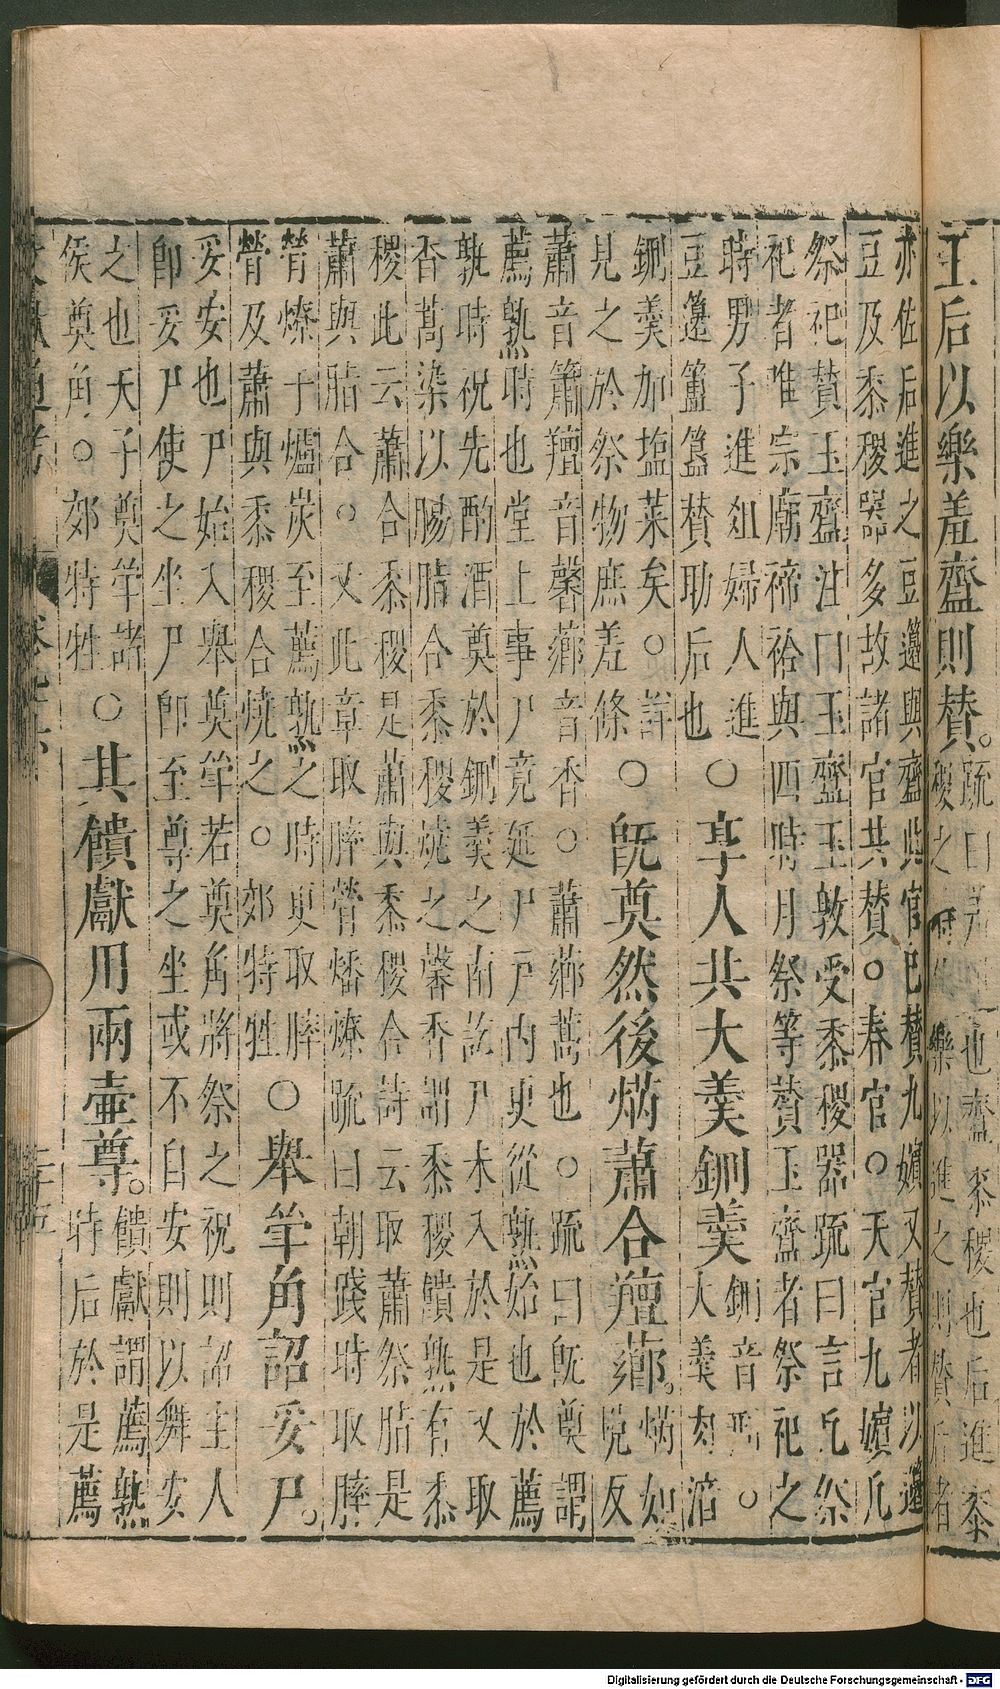 王后以樂羞齍則賛。疏曰
也齍黍稷也后進黍
稷之
樂以進之則賛后者
亦佐后進之豆籩與齍此官已賛九嬪又賛者以籩
豆及黍稷器多故諸官共賛。春官。天官九嬪凡
祭祀賛玉齍注曰玉齍玉敦受黍稷器疏曰言凡祭
祀者唯宗廟禘祫與四時月祭等賛玉齍者祭祀之
時男子進俎婦人進
豆籩簠簋賛助后也○亨人共大羹鉶羹鉶音刑。
大羹肉湆
鉶羹加塩菜矣。詳
見之於祭物庶羞條○旣奠然後焫蕭合羶薌。焫如
恱反
蕭音簫羶音馨薌音香。蕭薌蒿也。疏曰旣奠謂
薦熟時也堂上事尸竟延尸戶内更從熟始也於薦
孰時祝先酌酒奠於鉶羹之南訖尸未入於是又取
香蒿染以腸脂合黍稷燒之馨香謂黍稷饋熟有黍
稷此云蕭合黍稷是蕭與黍稷合詩云取蕭祭脂是
蕭與脂合。又此章取膟膋燔燎疏曰朝踐時取膟
膋燎于爐炭至薦熟之時更取膟
膋及蕭與黍稷合燒之。郊特牲○舉斝角詔妥尸。
妥安也尸始入舉奠斝若奠角將祭之祝則詔主人
卽妥尸使之坐尸卽至尊之坐或不自安則以舞安
之也天子奠斝諸
侯奠角。郊特牲○其饋獻用兩壷尊。饋獻謂薦熟
時后於是薦
Digitalisierung gefördert durch die Deutsche Forschungsgemeinschaft - DFG